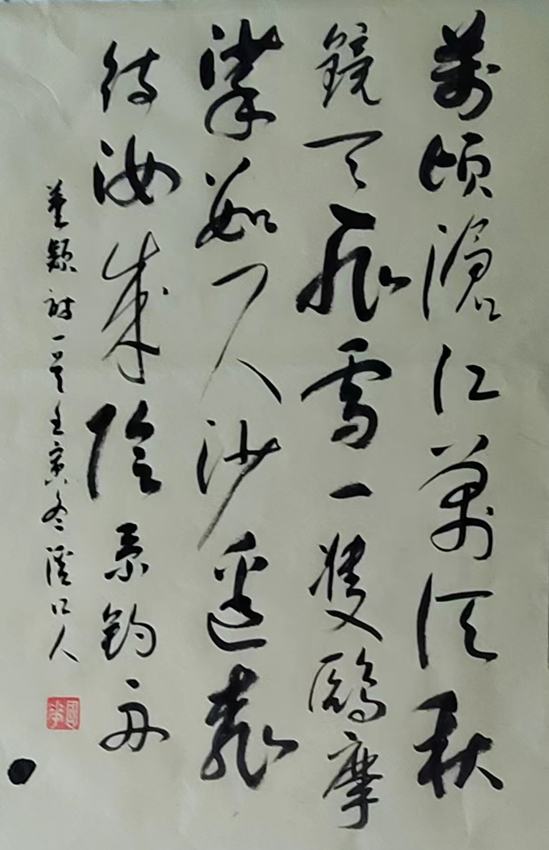 萬頃滄江萬頃秋
鏡天飛雪一雙鷗摩
挲數尺沙邊柳
待汝成陰系釣舟
董穎詩一首壬寅冬溪口人